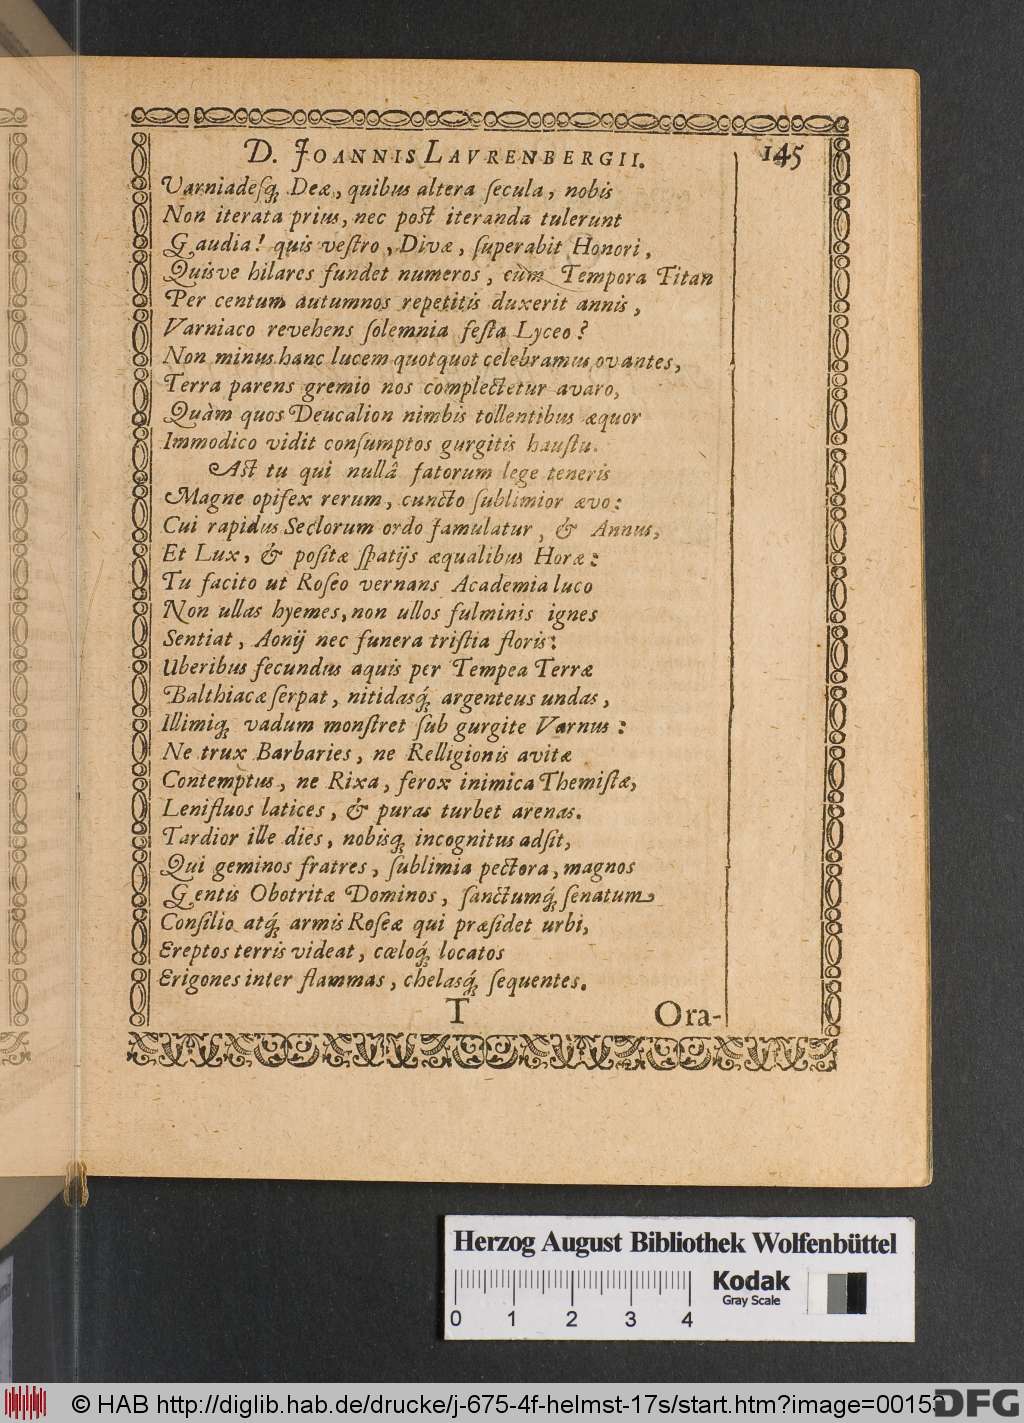 D. JOANNIS LAVRENBERGII. 145
Varniadesq́; Deæ, quibus altera secula, nobis
Non iterata prius, nec post iteranda tulerunt
Gaudia! quis vestro, Divæ, superabit Honori,
Quisve hilares fundet numeros, cùm Tempora Titan
Per centum autumnos repetitis duxerit annis,
Varniaco revehens solemnia festa Lyceo?
Non minus hanc lucem quotquot celebramus ovantes,
Terra parens gremio nos complectetur avaro,
Quàm quos Deucalion nimbis tollentibus æquor
Immodico vidit consumptos gurgitis haustu.
Ast tu qui nullâ fatorum lege teneris
Magne opifex rerum, cuncto sublimior ævo:
Cui rapidus Seclorum ordo famulatur, & Annus,
Et Lux, & positæ spatijs æqualibus Horæ:
Tu facito ut Roseo vernans Academia luco
Non ullas hyemes, non ullos fulminis ignes
Sentiat, Aonij nec funera tristia floris:
Uberibus fecundus aquis per Tempea Terræ
Balthiacæ serpat, nitidasq́; argenteus undas,
Illimiq; vadum monstret sub gurgite Varnus:
Ne trux Barbaries, ne Relligionis avitæ
Contemptus, ne Rixa, ferox inimica Themistæ,
Lenifluos latices, & puras turbet arenas.
Tardior ille dies, nobisq; incognitus adsit,
Qui geminos fratres, sublimia pectora, magnos
Gentis Obotritæ Dominos, sanctumq́; senatum
Consilio atq́; armis Roseæ qui præsidet urbi,
Ereptos terris videat, cœloq́; locatos
Erigones inter flammas, chelasq́; sequentes.
T Ora-
Herzog August Bibliothek Wolfenbüttel
Kodak
Gray Scale
0 1 2 3 4
© HAB http://diglib.hab.de/drucke/j-675-4f-helmst-17s/start.htm?image=00153
DFG